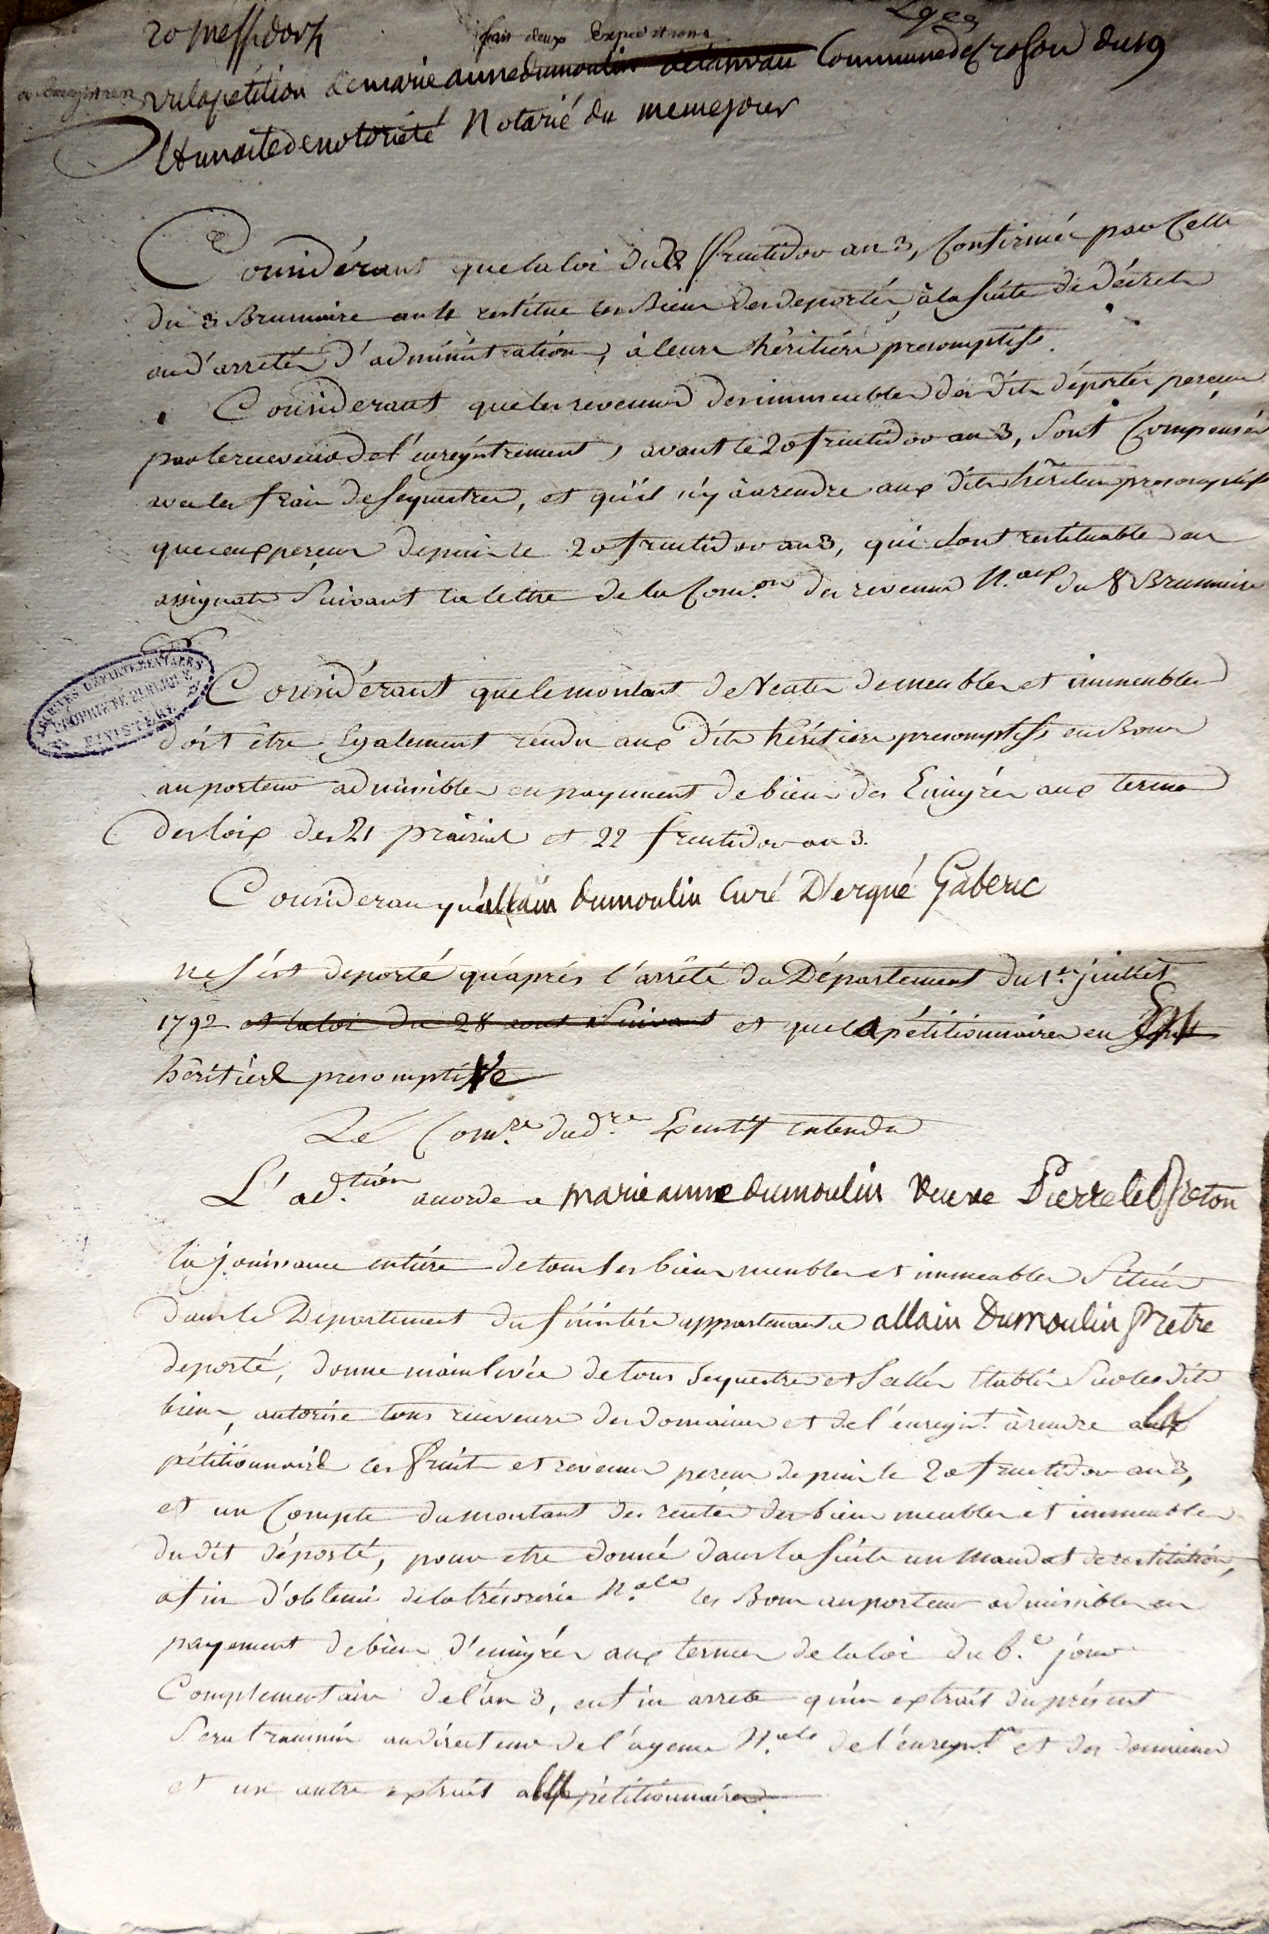 20 messidor 4
fait deux Expeditions
Vu la petition de marie anne dumoulin de lanvau Commune de Crosou du 19
et un acte de notoriété Notarié du meme jour
Considérant que la loi du 22 fructidor an 3, Confirmée par Celle
du 3 Brumaire an 4 restitue les Biens des deportés, à la suite de décrets
ou d'arretés d'administration, à leurs héritiers presomptifs.
Considerant que les revenus des immeubles des dits déportés perçus
par le receveur de l'enregistrement, avant le 20 fructidor an 3, sont Compensés
avec les frais de sequestre, et qu'il n'y à à rendre aux dits héritiers presomptifs
que ceux perçus depuis le 20 fructidor an 3, qui sont restituables en
assignats suivant la lettre de la Com.on des revenus N.aux du 8 Brumaire
ARCHIVES DÉPARTEMENTALES
PROPRIÉTÉ PUBLIQUE
FINISTÈRE
Considérant que le montant de Ventes de meubles et immeubles
doit être Egalement rendu aux dits héritiers presomptifs en Bons
au porteur admissibles en payement de biens des Emigrés aux termes
des loix des 21 prairial et 22 fructidor an 3.
Considerant qu'allain dumoulin Curé D'ergué Gaberic
ne s'est deporté qu'après l'arrêté du Département du 1.er juillet
1792 et la loi du 28 aout suivant et que la pétitionnaire en Est
héritière presomptive
Le Com.re du d.re Executif entendu
L'ad.tion accorde a marie anne dumoulin Veuve Pierre le Breton
la jouissance entière de tous les biens meubles et immeubles situés
dans le Departement du finistère appartenants a allain Dumoulin Prêtre
deporté, donne mainlevée de tous sequestres et scellés établis sur les dits
biens, autorise tous receveurs des domaines et de l'enregist. à rendre a la
pétitionnaire les fruits et revenus perçus depuis le 20 fructidor an 3,
et un Compte du montant des ventes des biens meubles et immeubles
du dit déporté, pour etre donné dans la suite un mandat de restitution,
afin d'obtenir de la trésorerie N.ale les Bons au porteur admissibles en
payement de biens d'emigrés aux termes de la loi du 6.e jour
Complementaire de l'an 3, enfin arrete qu'un extrait du présent
sera transmis au directeur de l'agence N.ale de l'enregist.nt et des domaines
et un autre extrait a la pétitionnaire.